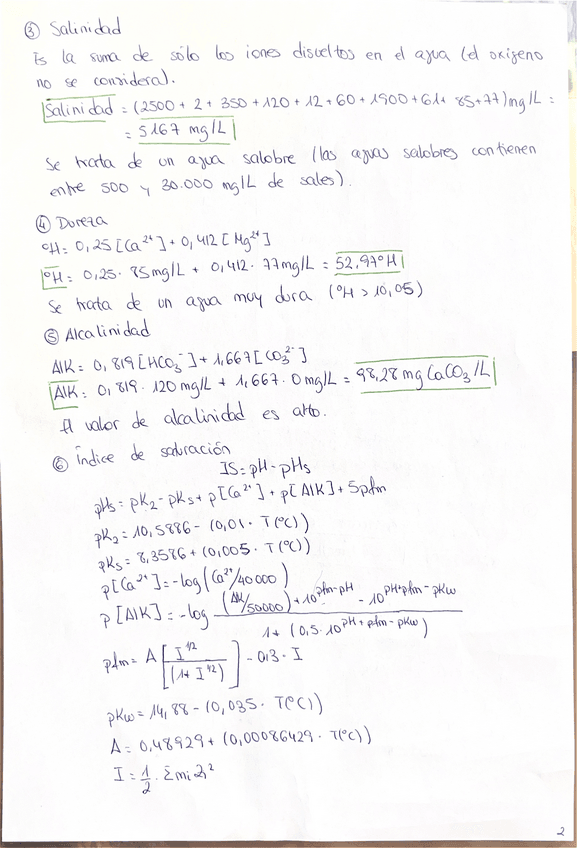 ③ Salinidad
Es la suma de sólo los iones disueltos en el agua (el oxígeno
no se considera).
Salinidad = (2500 + 2 + 350 + 120 + 12 + 60 + 1900 + 61 + 85 + 77) mg/L =
= 5167 mg/L
Se trata de un agua salobre (las aguas salobres contienen
entre 500 y 30.000 mg/L de sales).
④ Dureza
ºH = 0,25 [Ca²⁺] + 0,412 [Mg²⁺]
ºH = 0,25 · 85 mg/L + 0,412 · 77 mg/L = 52,97ºH
Se trata de un agua muy dura (ºH > 10,05)
⑤ Alcalinidad
AlK = 0,819 [HCO₃⁻] + 1,667 [CO₃²⁻]
AlK = 0,819 · 120 mg/L + 1,667 · 0 mg/L = 98,28 mg CaCO₃/L
El valor de alcalinidad es alto.
⑥ Índice de saturación
IS = pH - pHs
pHs = pK₂ - pKs + p[Ca²⁺] + p[AlK] + 5pfm
pK₂ = 10,5886 - (0,01 · T(ºC))
pKs = 8,3586 + (0,005 · T(ºC))
p[Ca²⁺] = -log(Ca²⁺/40000)
p[AlK] = -log ((AlK/50000) + 10^(pfm-pH) - 10^(pH+pfm-pKw)) / (1 + (0,5 · 10^(pH+pfm-pKw)))
pfm = A [I^(1/2) / (1+I^(1/2))] - 0,3 · I
pKw = 14,88 - (0,035 · T(ºC))
A = 0,48929 + (0,00086429 · T(ºC))
I = 1/2 · Σmi Zi²
2